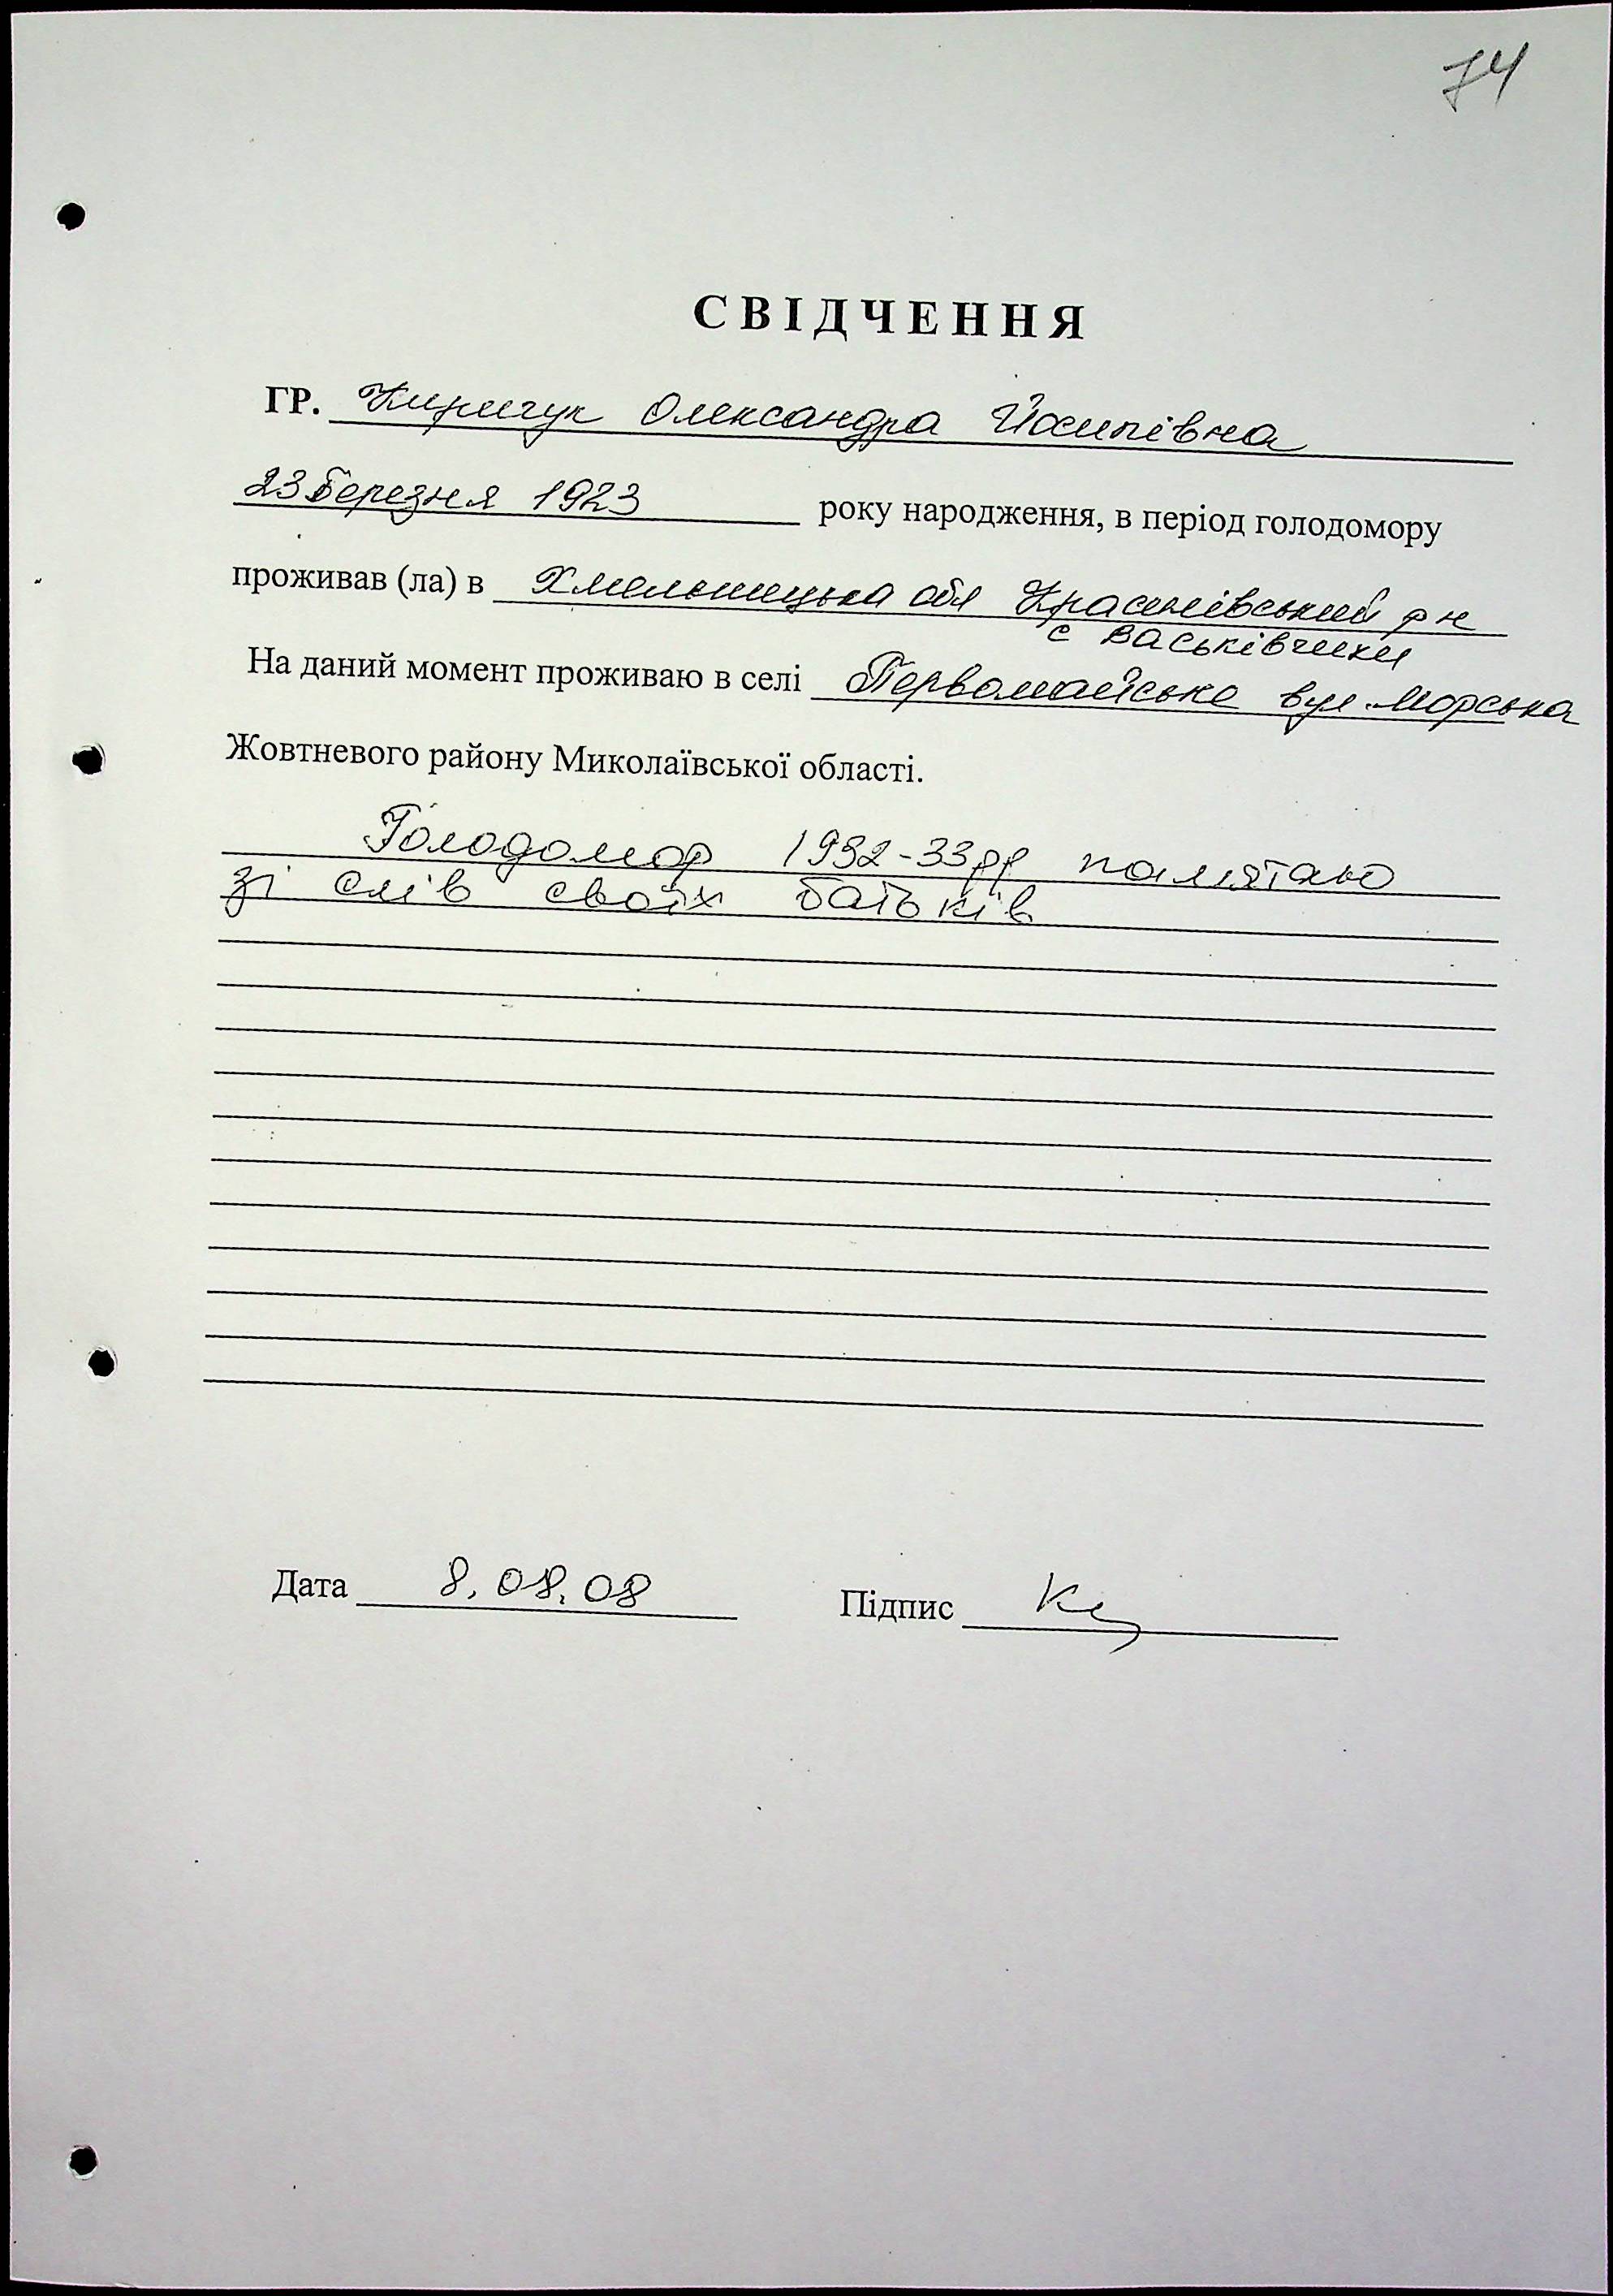 74
СВІДЧЕННЯ
ГР. Киричук Олександра Йосипівна
23 Березня 1923 року народження, в період голодомору
проживав (ла) в Хмельницька обл Красилівський р н
с Васьківчики
На даний момент проживаю в селі Первомайське вул. Морська
Жовтневого району Миколаївської області.
Голодомор 1932-33рр памятаю
зі слів своїх батьків
Дата 8.08.08 Підпис